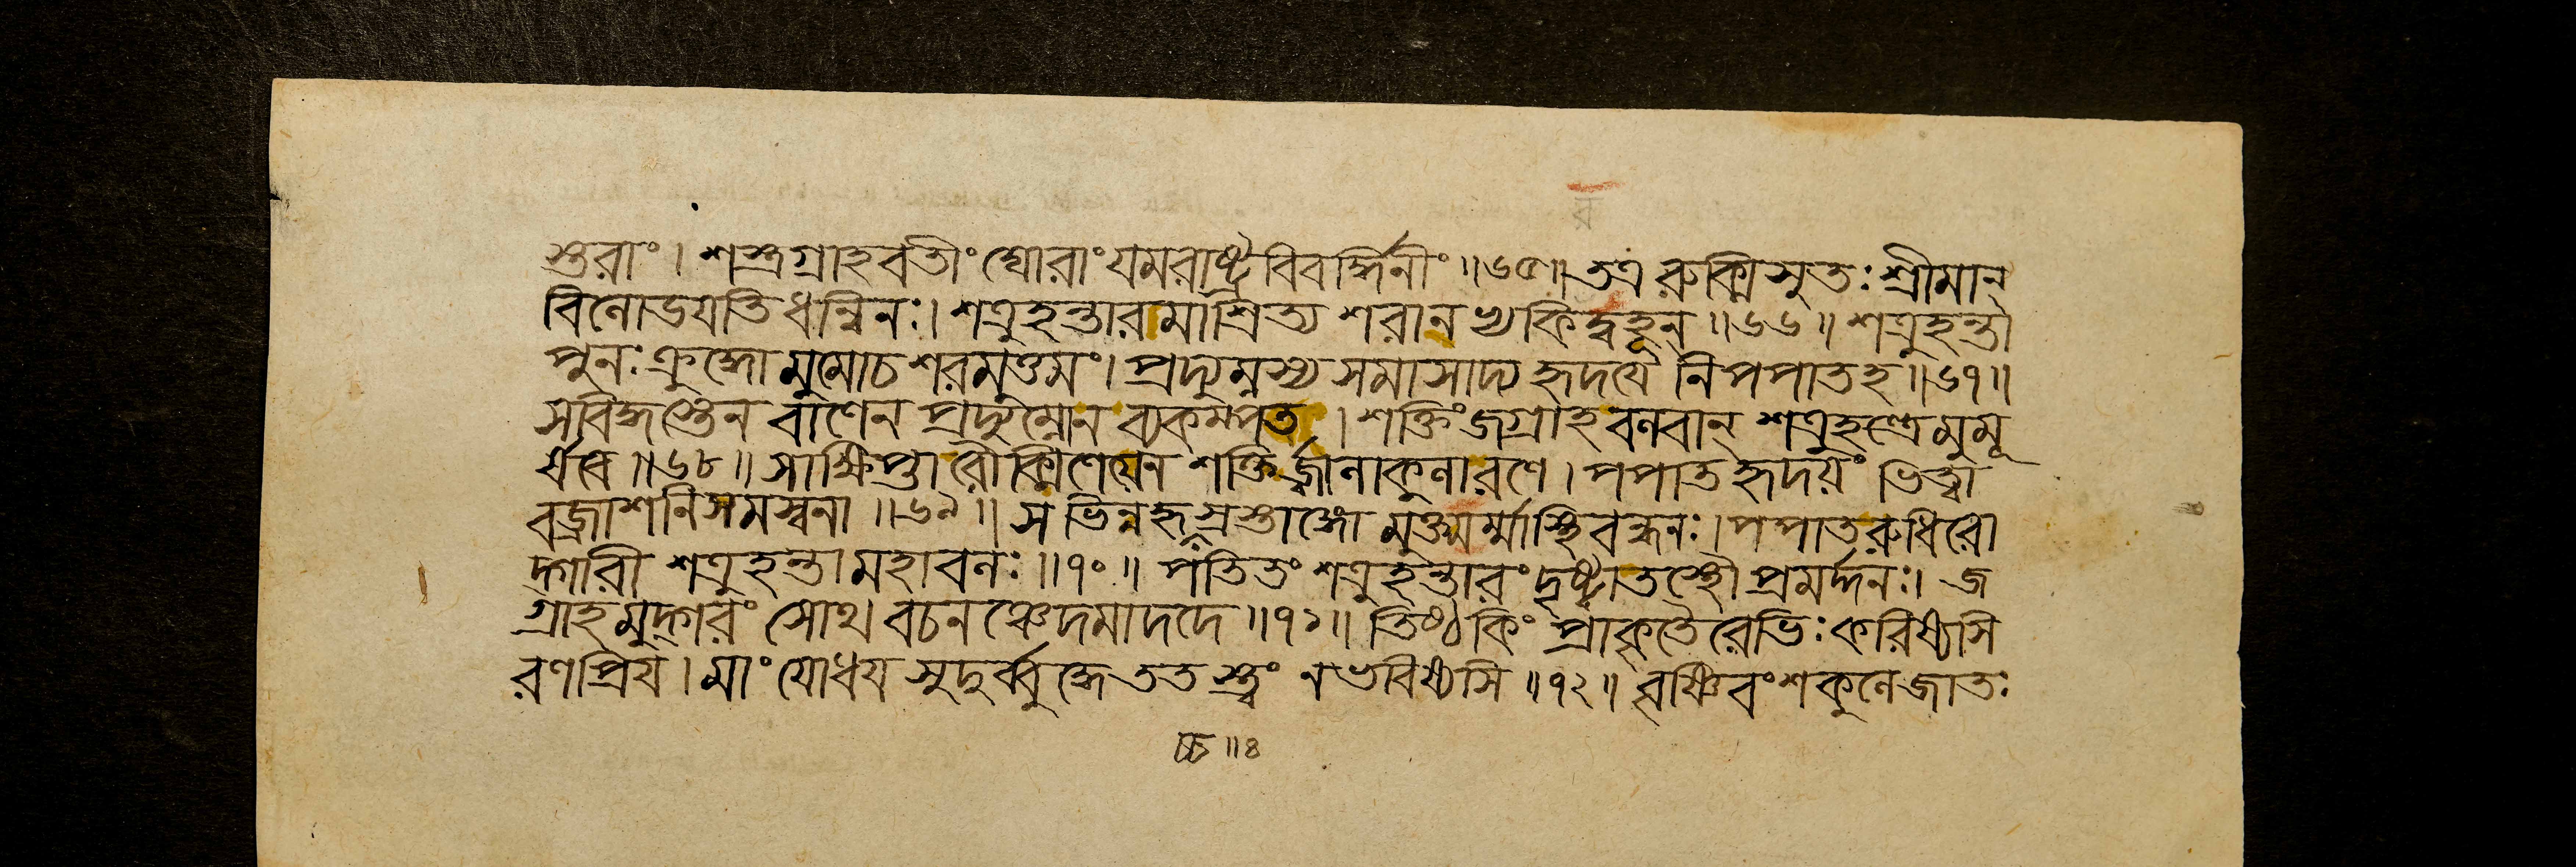 স্তরাং। শস্ত্রগ্রাহবতীং ঘোরাং যমরাষ্ট্রবিবর্দ্ধিনীং॥৬৫॥তত্র রুক্মিসুতঃ শ্রীমান্
বিলোডয়তি ধন্বিনঃ। শত্রুহন্তারমাশ্রিত্য শরান
শত্রুহন্তা
পুনঃ ক্রুদ্ধো মুমোচ শরমুত্তমং। প্রদ্যুম্নস্য সমাসাদ্য হৃদয়ে নিপপাত হ॥৬৭॥
স বিদ্ধস্তেন বাণেন প্রদ্যুম্নোন ব্যকম্পত । শক্তিং জগ্রাহ বলবান্ শত্রুহন্ত্রে মুমূ
র্ষবে॥৬৮॥ সা ক্ষিপ্তা রৌক্মিণেয়েন শক্তির্জ্বালাকুলা রণে। পপাত হৃদয়ং ভিত্ত্বা
বজ্রাশনিসমস্বনা॥৬৯॥ স ভিন্নহৃ
স্রস্তাঙ্গো মুক্তমর্ম্মাস্থিবন্ধনঃ। পপাত রুধিরো
দ্গারী শত্রুহন্তা মহাবলঃ॥৭০॥ পতিতং শত্রুহন্তারং দৃষ্ট্বা তস্থৌ প্রমর্দ্দনঃ। জ
গ্রাহ মুদ্গরং সোথ বচনঞ্চেদমাদদে॥৭১॥ তিষ্ঠ কিং প্রাকৃতৈরেভিঃ করিষ্যসি
রণপ্রিয়। মাং যোধয় সুদুর্ব্বুদ্ধে ততস্ত্বং ন ভবিষ্যসি॥৭২॥ বৃষ্ণিবংশকুলে জাতঃ